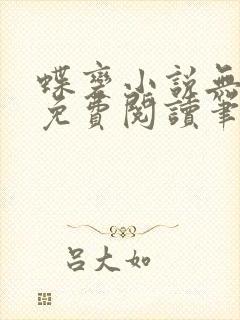 蝶变小说無
免費閱讀筆
吕大如